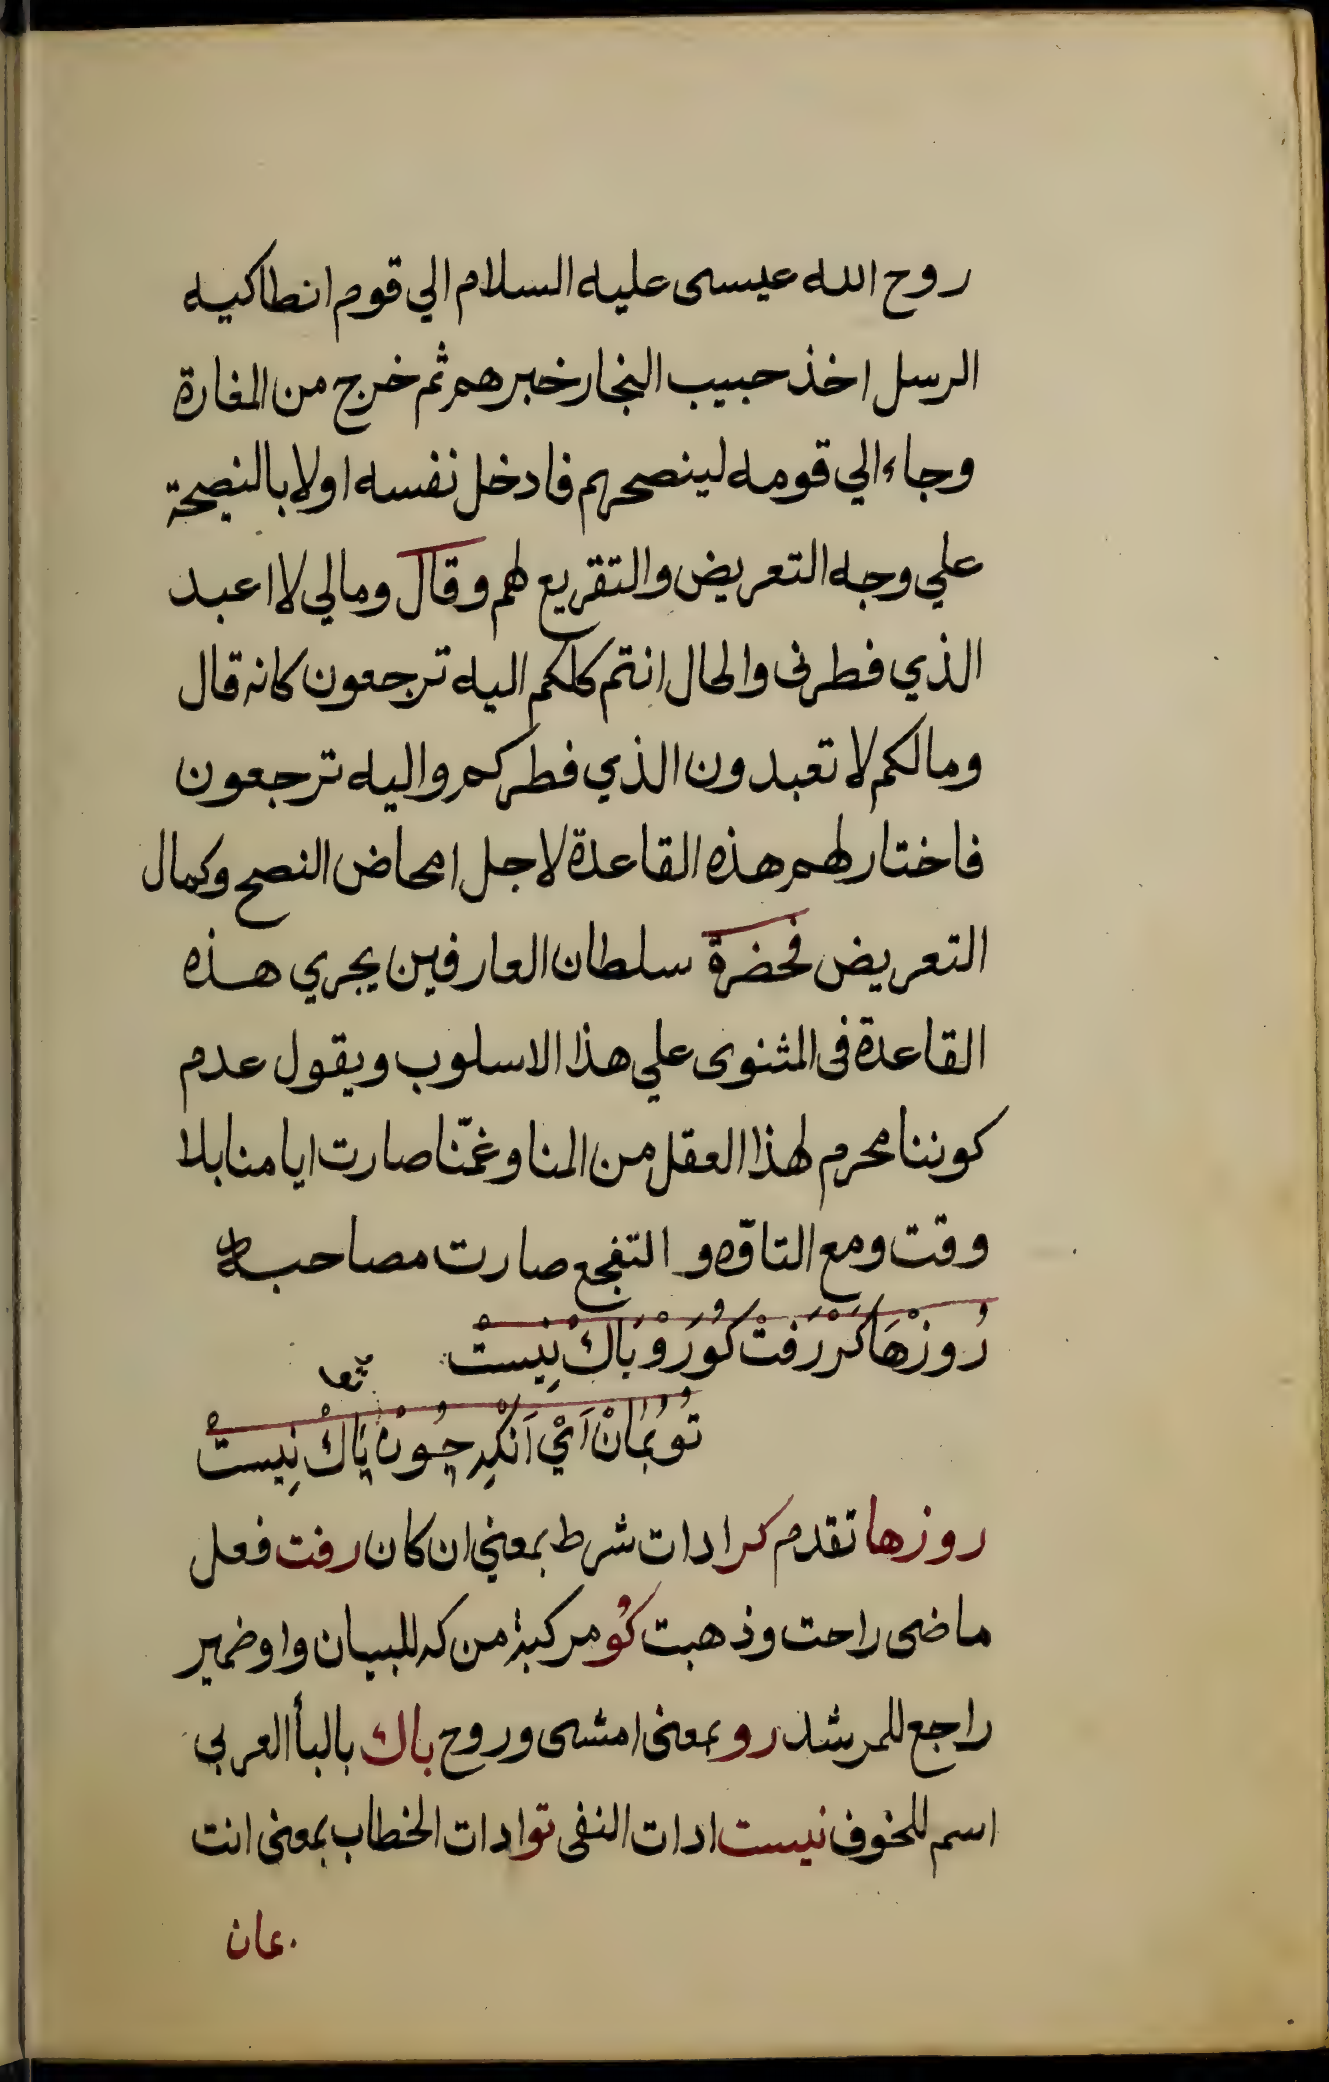 روح الله عيسى عليه السلام الي قوم انطاكيه
الرسل اخذ حبيب النجار خبرهم ثم خرج من المغارة
وجاء الي قومه لينصحهم فادخل نفسه اولا بالنصيحة
علي وجه التعريض والتقريع لهم وقال ومالي لا اعبد
الذي فطرنى والحال انتم كلكم اليه ترجعون كانه قال
ومالكم لا تعبدون الذي فطركم واليه ترجعون
فاختار لهم هذه القاعدة لاجل امحاض النصح وكمال
التعريض فحضرة سلطان العارفين يجري هذه
القاعدة فى المثنوى علي هذا الاسلوب ويقول عدم
كوننا محرم لهذا العقل من المنا وغمّنا صارت ايامنا بلا
وقت ومع التاوه و التفجع صارت مصاحبه
رُوزْهَا كَرْرَفتْ كُورَوْ بَاكْ نِيستْ
تُو بُمَانْ اَيْ اَنْكِه چُونْ پَاكْ نِيستْ
روزها تقدم كر ادات شرط بمعني ان كان رفت فعل
ماضى راحت وذهبت كُو مركبة من كه للبيان واو ضمير
راجع للمرشد رو بمعنى امشى وروح باك بالبأ العربي
اسم للخوف نيست ادات النفى تو ادات الخطاب بمعنى انت
بمان